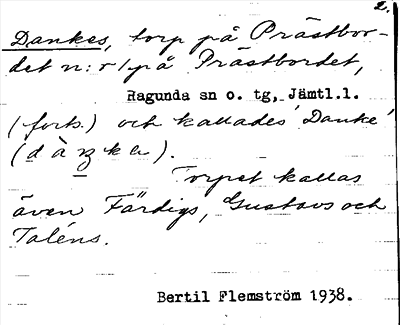 2.
Dankes, torp på Prästbor-
det n:r 1 på Prästbordet,
Ragunda sn o. tg, Jämtl.l.
(forts.) och kallades 'Danke'
Torpet kallas
även Färdigs, Gustavs och
Taléns.
Bertil Flemström 1938.